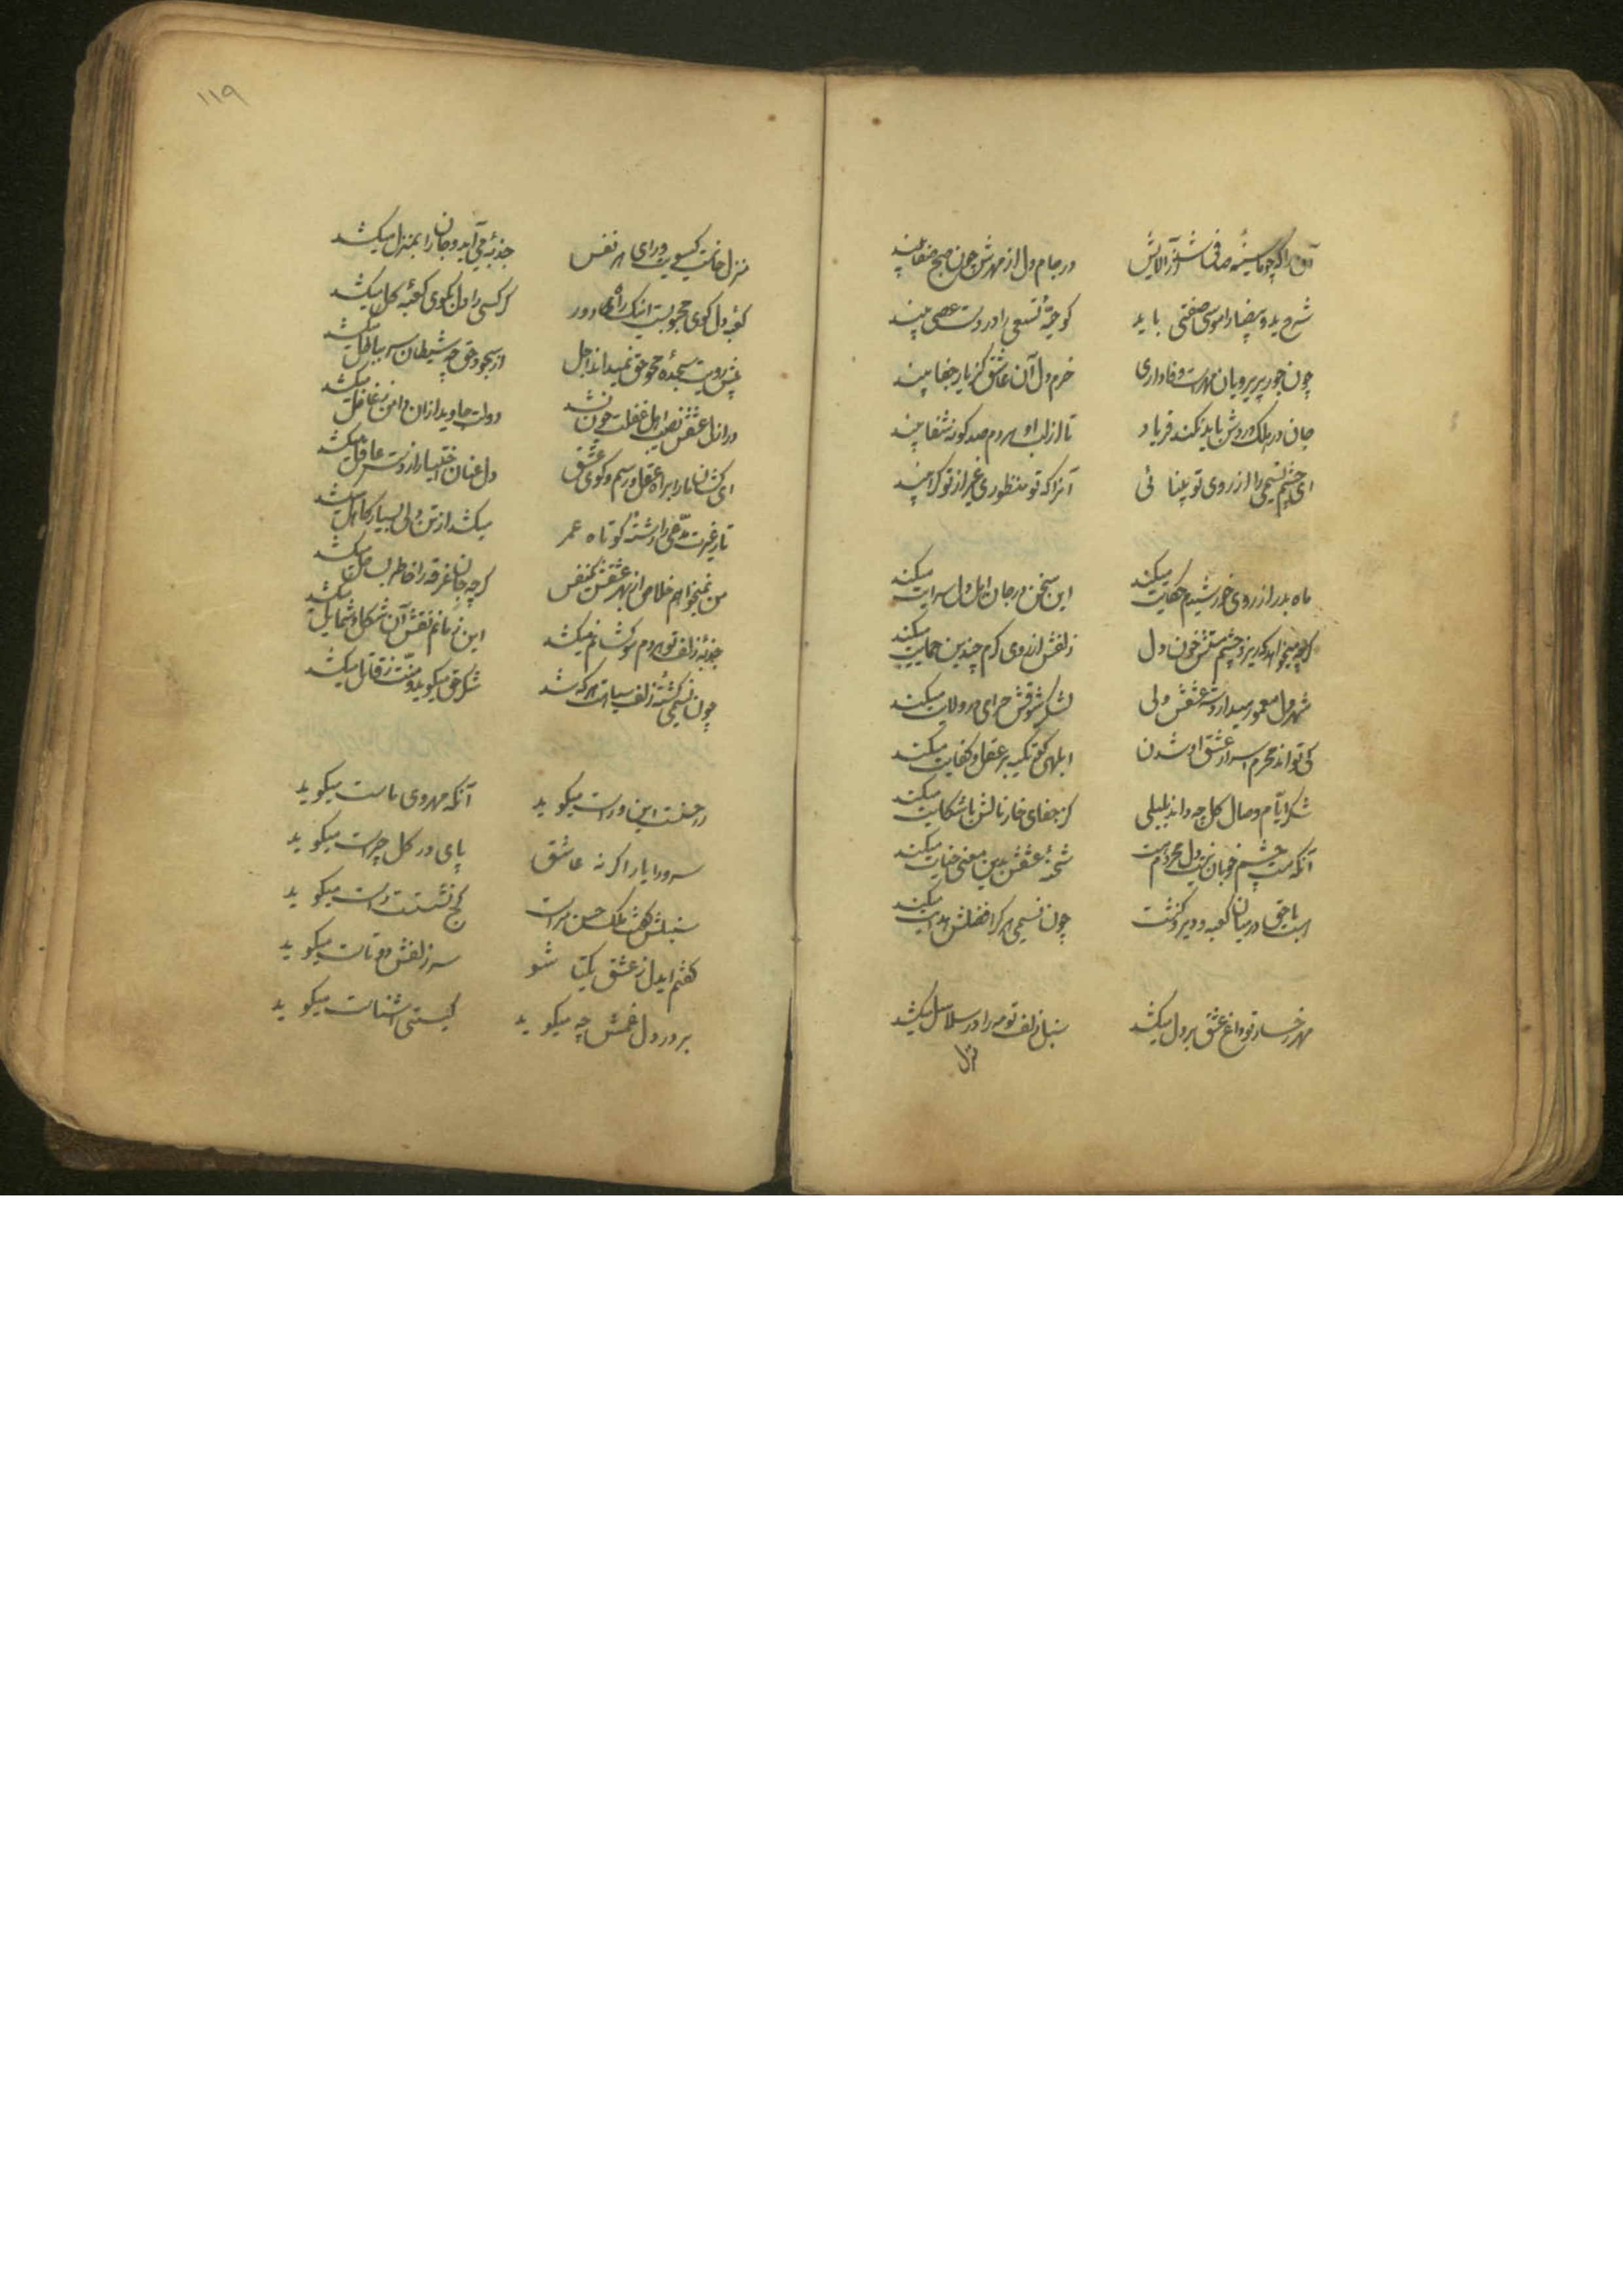 آن را که چو ما سینه صافی شد از آلایش در جام دل از مهرش چون صبح صفا بیند
شرح ید و بیضا را موسی صفتی باید کو حیّهٔ تسعی را در دست عصی بیند
چون جور پریرویان مهرست و وفاداری خرم دل آن عاشق کز یار جفا بیند
جان در هلک دردش باید نکند فریاد تا از لب او هردم صد گونه شفا بیند
ای چشم نسیمی را از روی تو بینائی آنرا که تو منظوری غیر از تو کرا بیند
ماه بدر از روی خورشیدم حکایت میکند این سخن در جان اهل دل سرایت میکند
گرچه میخواهد که ریزد چشم مستش خون دل زلفش از روی کرم چندین حمایت میکند
شهر دل معمور میدارد شه عشقش ولی لشکر شوقش خرابی در ولایت میکند
کی تواند محرم اسرار عشق او شدن ابلهی کو تکیه بر عقل و کفایت میکند
شکر ایّام وصال گل چه داند بلبلی کز جفای خار نالش با شکایت میکند
آنکه مست چشم خوبان نیست دل محروم است شحنهٔ عشقش بدین معنی جنایت میکند
با حق در میان کعبه و دیر گذشت چون نسیمی هر کرا فضلش هدایت میکند
مهر رخسار تو داغ عشق بر دل میکشد سنبل زلف تو مه را در سلاسل میکشد
منزل
۱۱۹
منزل جانست گیسویت ورای هر نفس جذبهٔ می آید و جان را بمنزل میکشد
کعبهٔ دل کوی محبوبست اینک راه دور گر کسی را دل بکوی کعبهٔ گل میکشد
پیش رویت سجدهٔ حق نمیداند اجل از سجود حق چه شیطان سر بباطل میکشد
در ازل عشقش نصیب اهل غفلت چون نشد دولت جاوید ازان دامن ز غافل میکشد
ای کشان ما را براه عقل و رسم و کوی عشق دل عنان اختیار از دست عاقل میکشد
تار غیرت مدّعی را رشته کوتاه عمر میکشد از تن ولی بسیار کاهل میکشد
من نمیخواهم خلاص از بهر عشقش یکنفس گرچه جان غرقه را خاطر بساحل میکشد
جذبهٔ زلف تو هردم مو کشانم میکشد این زمانم نقش آن شکل و شمایل میکشد
چون نسیمی کشتهٔ زلف سیاهت هر که شد شکر حق میگوید و منّت ز قاتل میکشد
رحمتست این و راست میگوید آنکه مهروی ماست میگوید
سرو را یار اگر نه عاشق پای در گل چراست میگوید
سنبلش گفت ملک حسن مراست کج نشستست راست میگوید
گفتم ایدل ز عشق یکتا شو سر زلفش دوتاست میگوید
بر در دل غمش چه میگوید کیستی آشناست میگوید